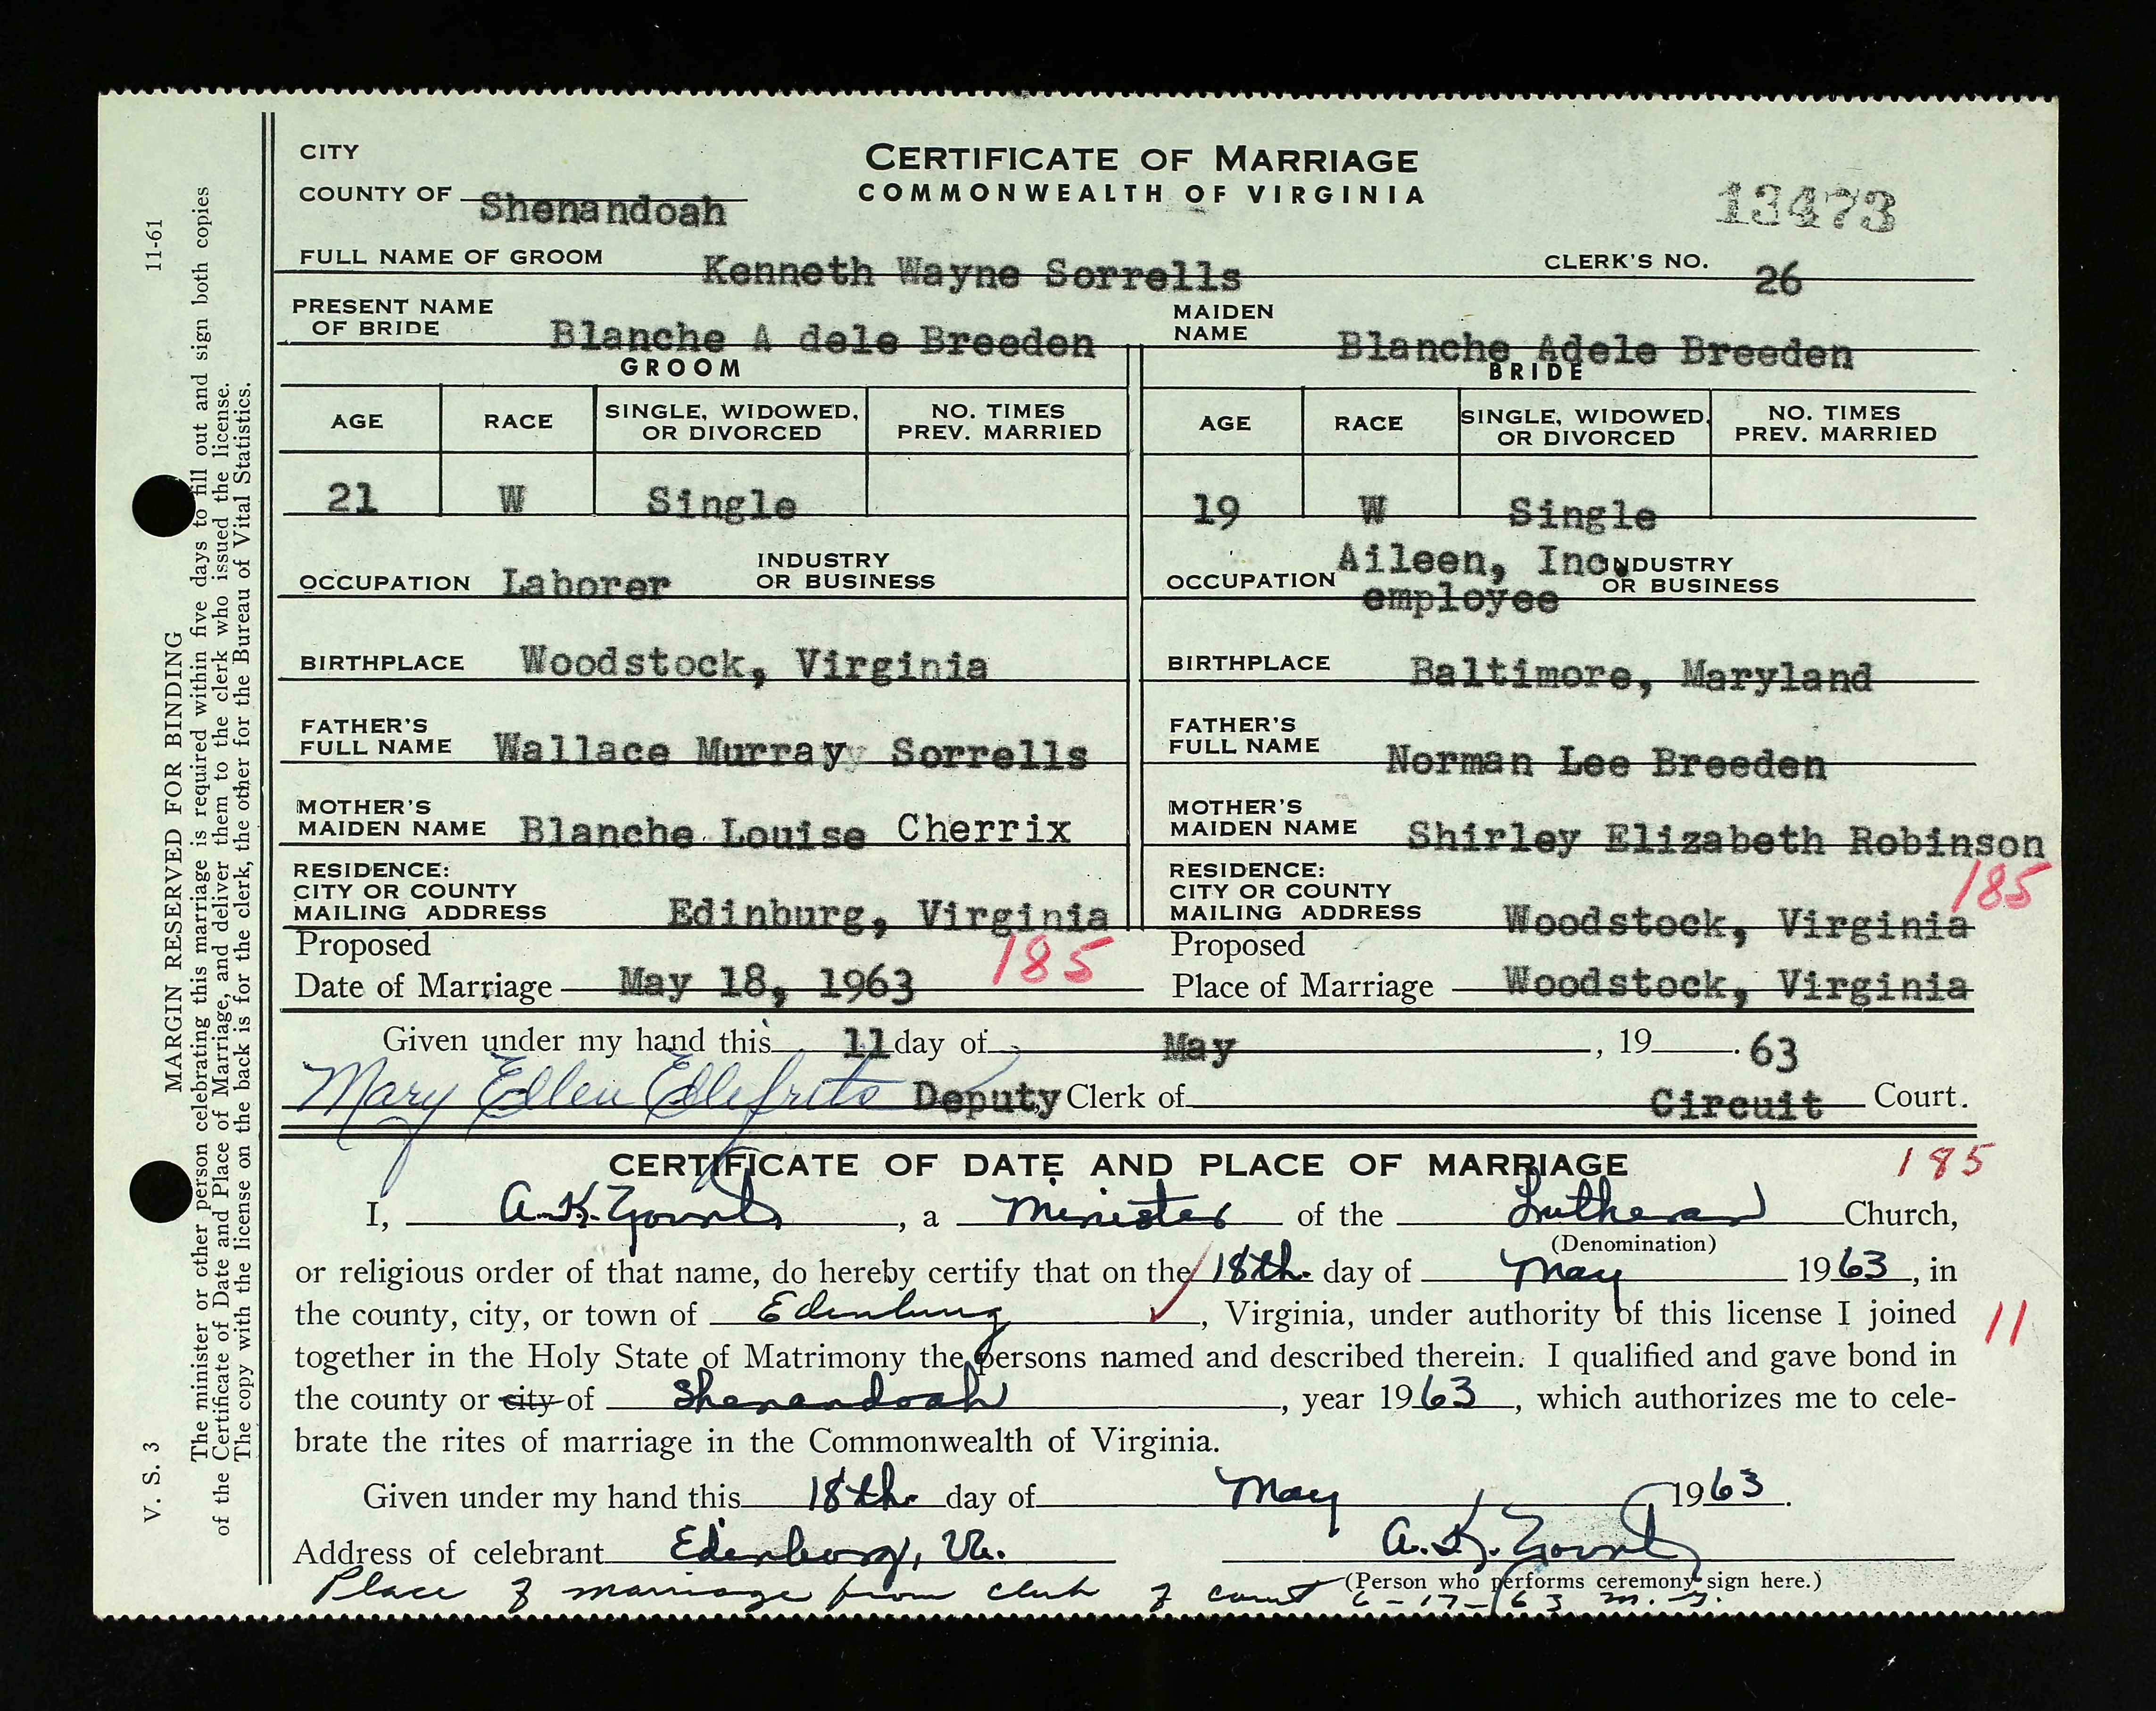 CITY
CERTIFICATE OF MARRIAGE
COUNTY OF Shenandoah
COMMONWEALTH OF VIRGINIA
13473
FULL NAME OF GROOM Kenneth Wayne Sorrells CLERK'S NO. 26
PRESENT NAME OF BRIDE Blanche A dele Breeden MAIDEN NAME Blanche Adele Breeden
GROOM BRIDE
AGE RACE SINGLE, WIDOWED, OR DIVORCED NO. TIMES PREV. MARRIED AGE RACE SINGLE, WIDOWED, OR DIVORCED NO. TIMES PREV. MARRIED
21 W Single 19 W Single
OCCUPATION Laborer INDUSTRY OR BUSINESS OCCUPATION Aileen, Inc. employee INDUSTRY OR BUSINESS
BIRTHPLACE Woodstock, Virginia BIRTHPLACE Baltimore, Maryland
FATHER'S FULL NAME Wallace Murray Sorrells FATHER'S FULL NAME Norman Lee Breeden
MOTHER'S MAIDEN NAME Blanche Louise Cherrix MOTHER'S MAIDEN NAME Shirley Elizabeth Robinson
RESIDENCE: CITY OR COUNTY MAILING ADDRESS Edinburg, Virginia 185 RESIDENCE: CITY OR COUNTY MAILING ADDRESS Woodstock, Virginia 185
Proposed Date of Marriage May 18, 1963 Proposed Place of Marriage Woodstock, Virginia
Given under my hand this 11 day of May, 19 63
Mary Ellen Edlefrits Deputy Clerk of Circuit Court.
CERTIFICATE OF DATE AND PLACE OF MARRIAGE 185
I, A. K. Yount, a Minister of the Lutheran Church,
(Denomination)
or religious order of that name, do hereby certify that on the 18th day of May 1963, in
the county, city, or town of Edinburg, Virginia, under authority of this license I joined 11
together in the Holy State of Matrimony the persons named and described therein. I qualified and gave bond in
the county or city of Shenandoah, year 1963, which authorizes me to cele-
brate the rites of marriage in the Commonwealth of Virginia.
Given under my hand this 18th day of May 1963.
Address of celebrant Edinburg, Va. A. K. Yount
(Person who performs ceremony sign here.)
Place of marriage from clerk of court 6-17-63 M. G.
11-61
MARGIN RESERVED FOR BINDING
V. S. 3
The minister or other person celebrating this marriage is required within five days to fill out and sign both copies
of the Certificate of Date and Place of Marriage, and deliver them to the clerk who issued the license.
The copy with the license on the back is for the clerk, the other for the Bureau of Vital Statistics.